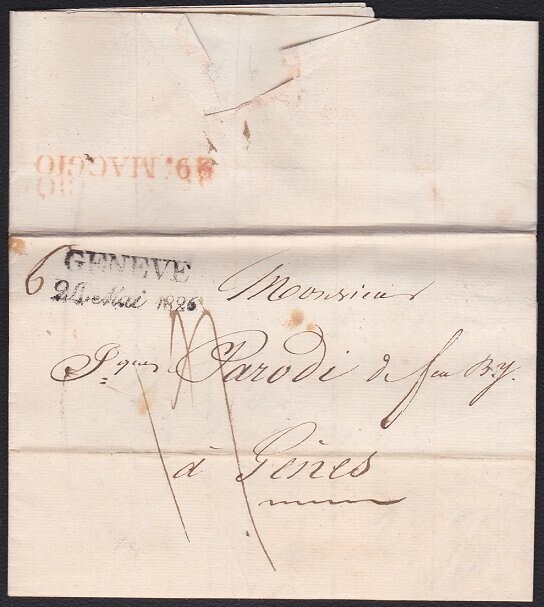 29. MAGGIO
6
GENEVE
Mai 1826
Monsieur
Jques Parodi de feu By.
à Gênes